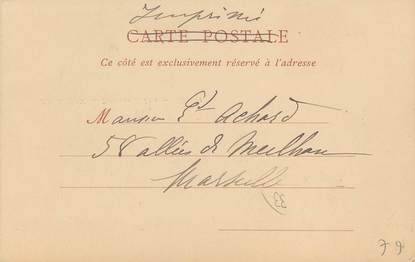 Imprimé
CARTE POSTALE
Ce côté est exclusivement réservé à l'adresse
Monsieur Et Achard
58 allées de Meilhan
Marseille
33